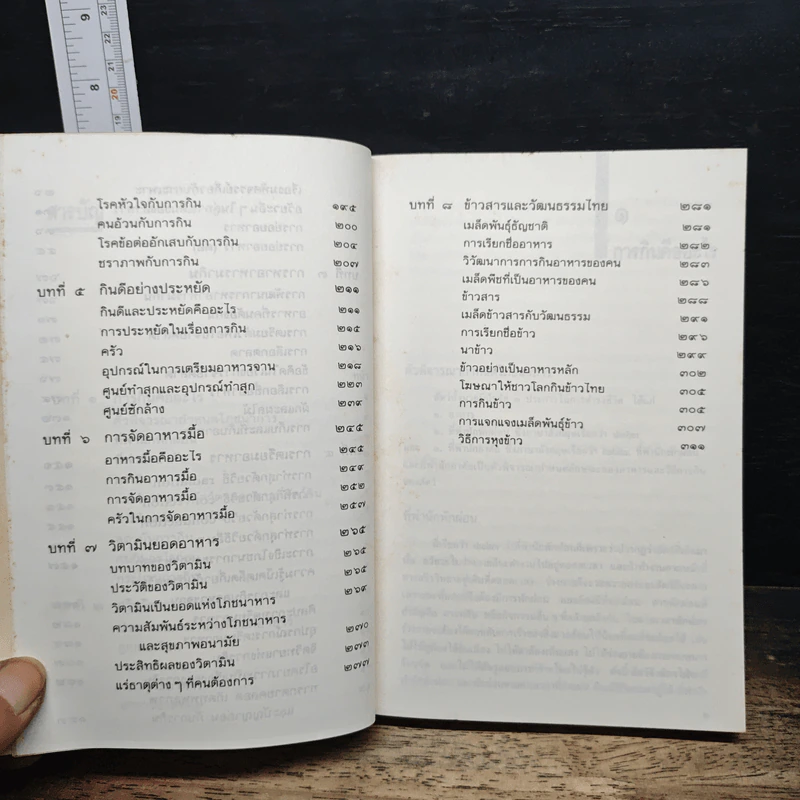 โรคหัวใจกับการกิน ๑๙๕
คนอ้วนกับการกิน ๒๐๐
โรคข้อต่ออักเสบกับการกิน ๒๐๔
ชราภาพกับการกิน ๒๐๗
บทที่ ๕ กินดีอย่างประหยัด ๒๑๑
กินดีและประหยัดคืออะไร ๒๑๑
การประหยัดในเรื่องการกิน ๒๑๕
ครัว ๒๑๖
อุปกรณ์ในการเตรียมอาหารจาน ๒๑๘
ศูนย์ทำสุกและอุปกรณ์ทำสุก ๒๒๓
ศูนย์ซักล้าง ๒๓๙
บทที่ ๖ การจัดอาหารมื้อ ๒๔๕
อาหารมื้อคืออะไร ๒๔๕
การกินอาหารมื้อ ๒๔๙
การจัดอาหารมื้อ ๒๕๒
ครัวในการจัดอาหารมื้อ ๒๕๗
บทที่ ๗ วิตามินยอดอาหาร ๒๖๕
บทบาทของวิตามิน ๒๖๕
ประวัติของวิตามิน ๒๖๕
วิตามินเป็นยอดแห่งโภชนาหาร ๒๖๙
ความสัมพันธ์ระหว่างโภชนาหาร
และสุขภาพอนามัย ๒๗๐
ประสิทธิผลของวิตามิน ๒๗๓
แร่ธาตุต่าง ๆ ที่คนต้องการ ๒๗๗
บทที่ ๘ ข้าวสารและวัฒนธรรมไทย ๒๘๑
เมล็ดพันธุ์ธัญชาติ ๒๘๑
การเรียกชื่ออาหาร ๒๘๒
วิวัฒนาการการกินอาหารของคน ๒๘๓
เมล็ดพืชที่เป็นอาหารของคน ๒๘๖
ข้าวสาร ๒๘๘
เมล็ดข้าวสารกับวัฒนธรรม ๒๙๑
การเรียกชื่อข้าว ๒๙๖
นาข้าว ๒๙๙
ข้าวอย่างเป็นอาหารหลัก ๓๐๒
โฆษณาให้ชาวโลกกินข้าวไทย ๓๐๕
การกินข้าว ๓๐๕
การแจกแจงเมล็ดพันธุ์ข้าว ๓๐๗
วิธีการหุงข้าว ๓๑๑
9
8
23
22
21
20
19